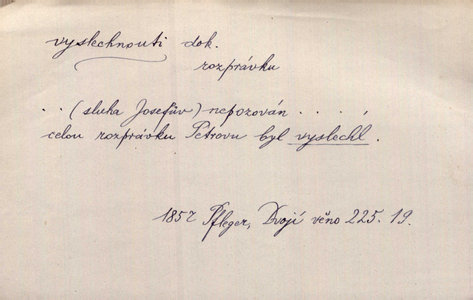 vyslechnouti dok.
rozprávku
. . (sluha Josefův) nepozován . . . . ,
celou rozprávku Petrovu byl vyslechl.
1857 Pfleger, Dvojí věno 225. 19.